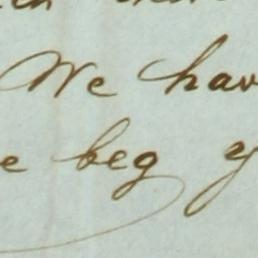 We hav
e beg y